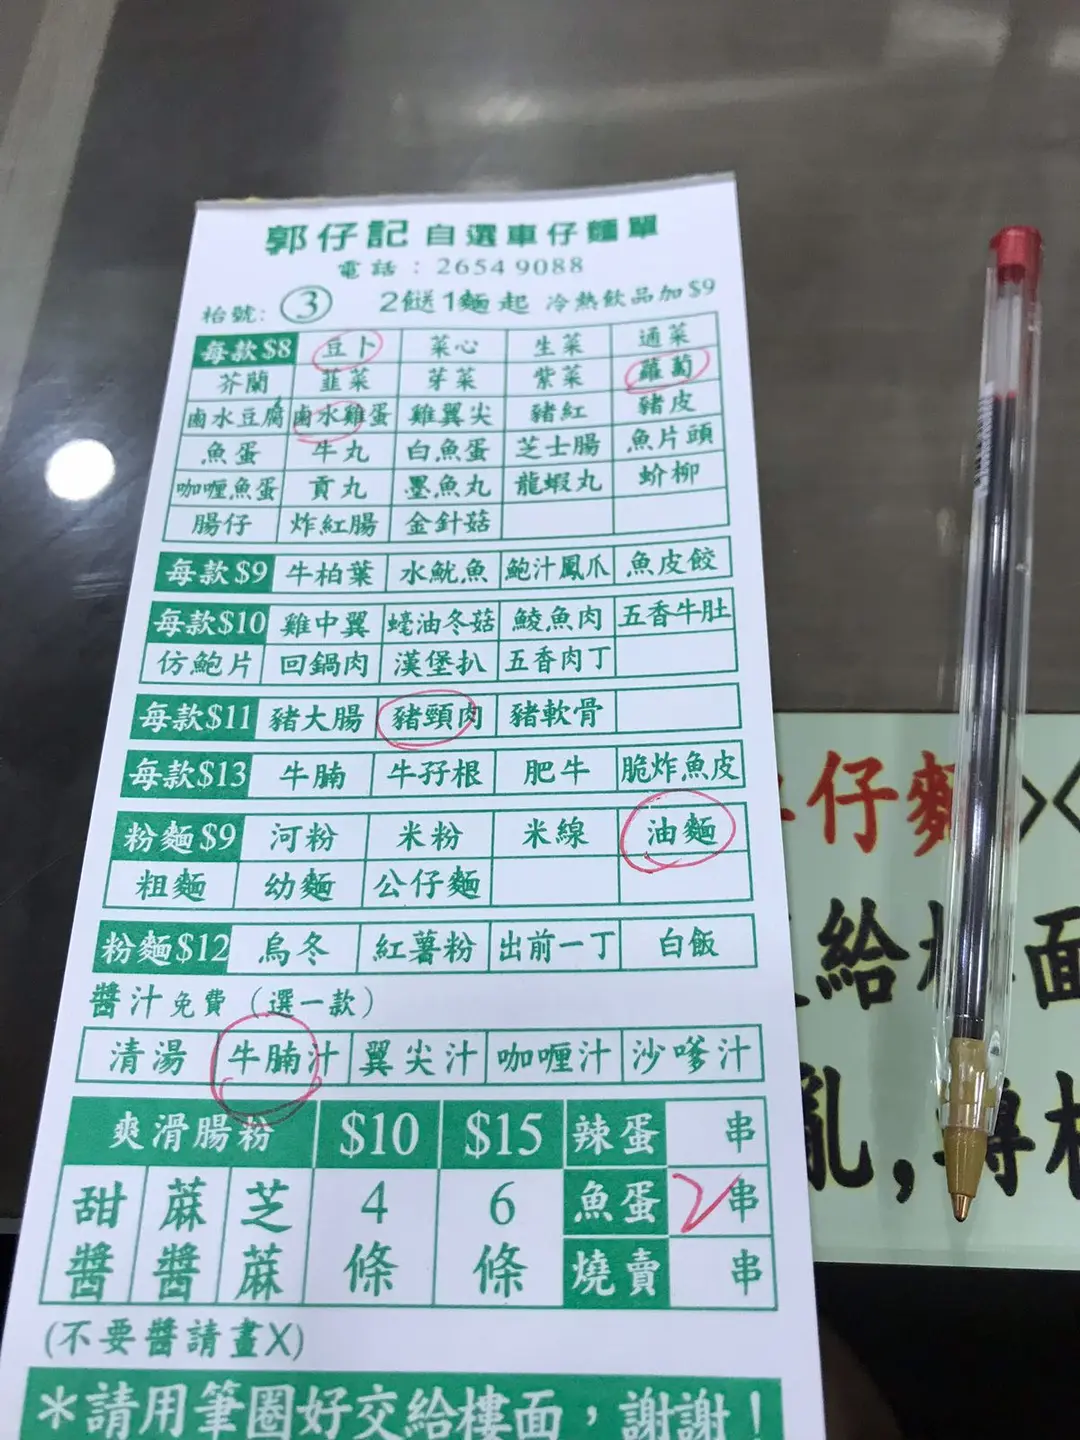 郭仔記 自選車仔麵單
電話：2654 9088
枱號: ③ 2餸1麵起 冷熱飲品加$9
每款$8 豆卜 菜心 生菜 通菜
芥蘭 韮菜 芽菜 紫菜 蘿蔔
鹵水豆腐 鹵水雞蛋 雞翼尖 豬紅 豬皮
魚蛋 牛丸 白魚蛋 芝士腸 魚片頭
咖喱魚蛋 貢丸 墨魚丸 龍蝦丸 蚧柳
腸仔 炸紅腸 金針菇
每款$9 牛柏葉 水魷魚 鮑汁鳳爪 魚皮餃
每款$10 雞中翼 蠔油冬菇 鯪魚肉 五香牛肚
仿鮑片 回鍋肉 漢堡扒 五香肉丁
每款$11 豬大腸 豬頸肉 豬軟骨
每款$13 牛腩 牛孖根 肥牛 脆炸魚皮
粉麵$9 河粉 米粉 米線 油麵
粗麵 幼麵 公仔麵
粉麵$12 烏冬 紅薯粉 出前一丁 白飯
醬汁免費（選一款）
清湯 牛腩汁 翼尖汁 咖喱汁 沙嗲汁
爽滑腸粉 $10 $15 辣蛋 串
甜醬 蔴醬 芝蔴 4條 6條 魚蛋 2串
燒賣 串
(不要醬請畫X)
*請用筆圈好交給樓面，謝謝！
仔麵
給 面
亂,